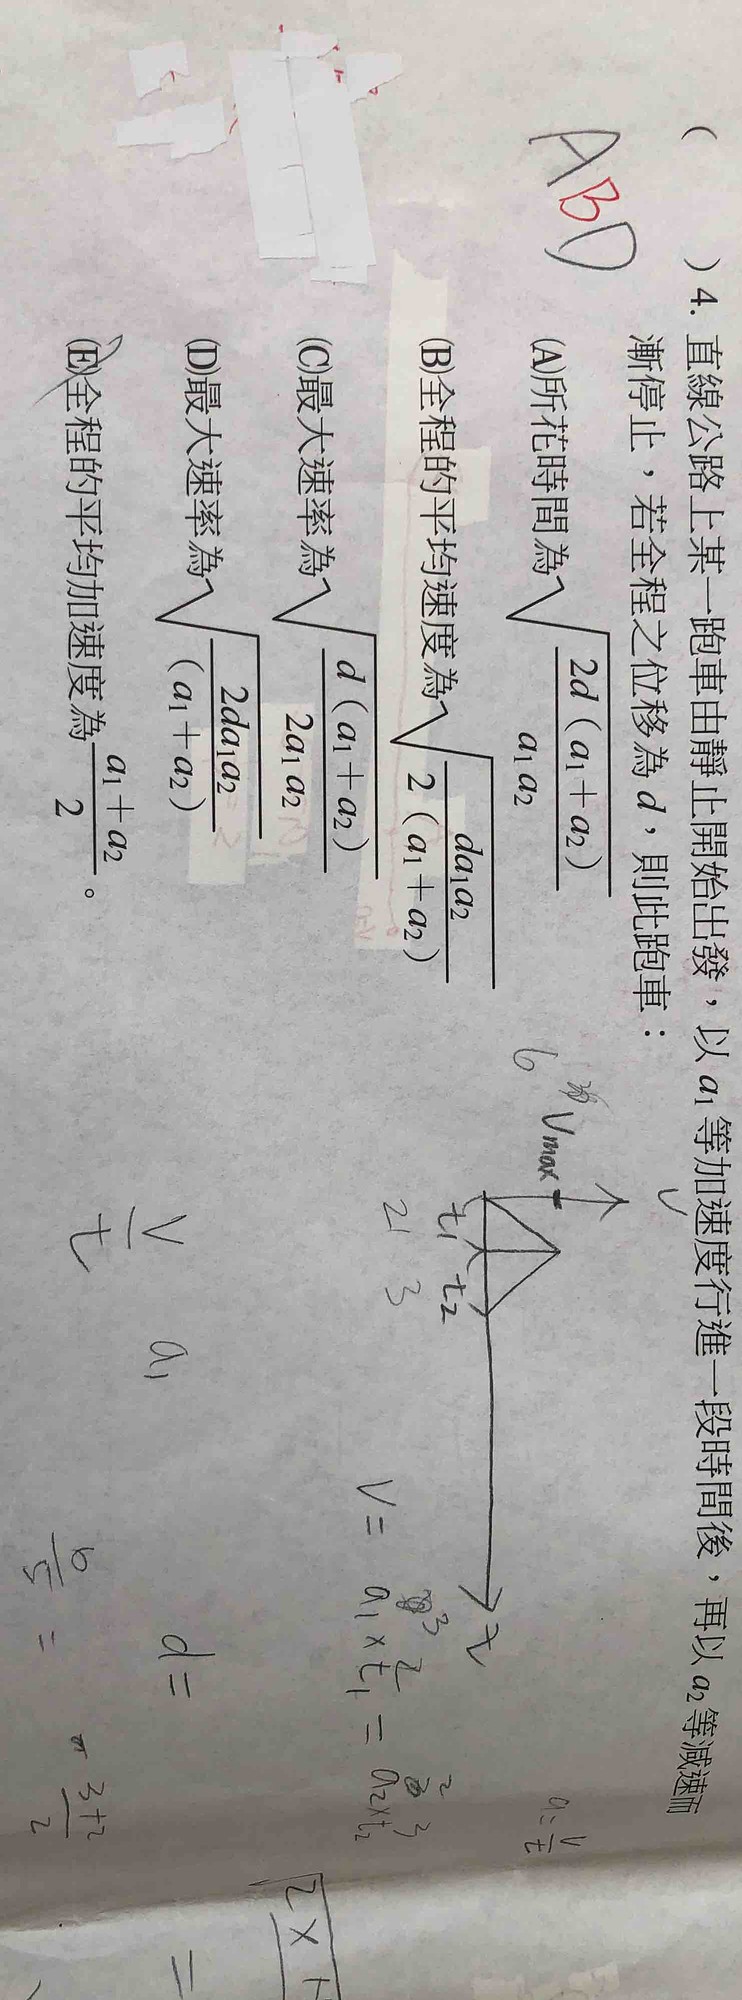 (　　) 4. 直線公路上某一跑車由靜止開始出發，以 a₁ 等加速度行進一段時間後，再以 a₂ 等減速而
漸停止，若全程之位移為 d，則此跑車：
ABD
(A)所花時間為√(2d（a₁＋a₂）/a₁a₂)
(B)全程的平均速度為√(da₁a₂/2（a₁＋a₂）)
(C)最大速率為√(d（a₁＋a₂）/2a₁a₂)
(D)最大速率為√(2da₁a₂/（a₁＋a₂）)
(E)全程的平均加速度為(a₁＋a₂)/2。
V
6
Vmax
t₁ t₂
2 3
a = V/t
V = a₁ × t₁ = a₂ × t₂
3 2 2 3
V/t
a₁
d =
6/5 =
3+2/2
√2×
=